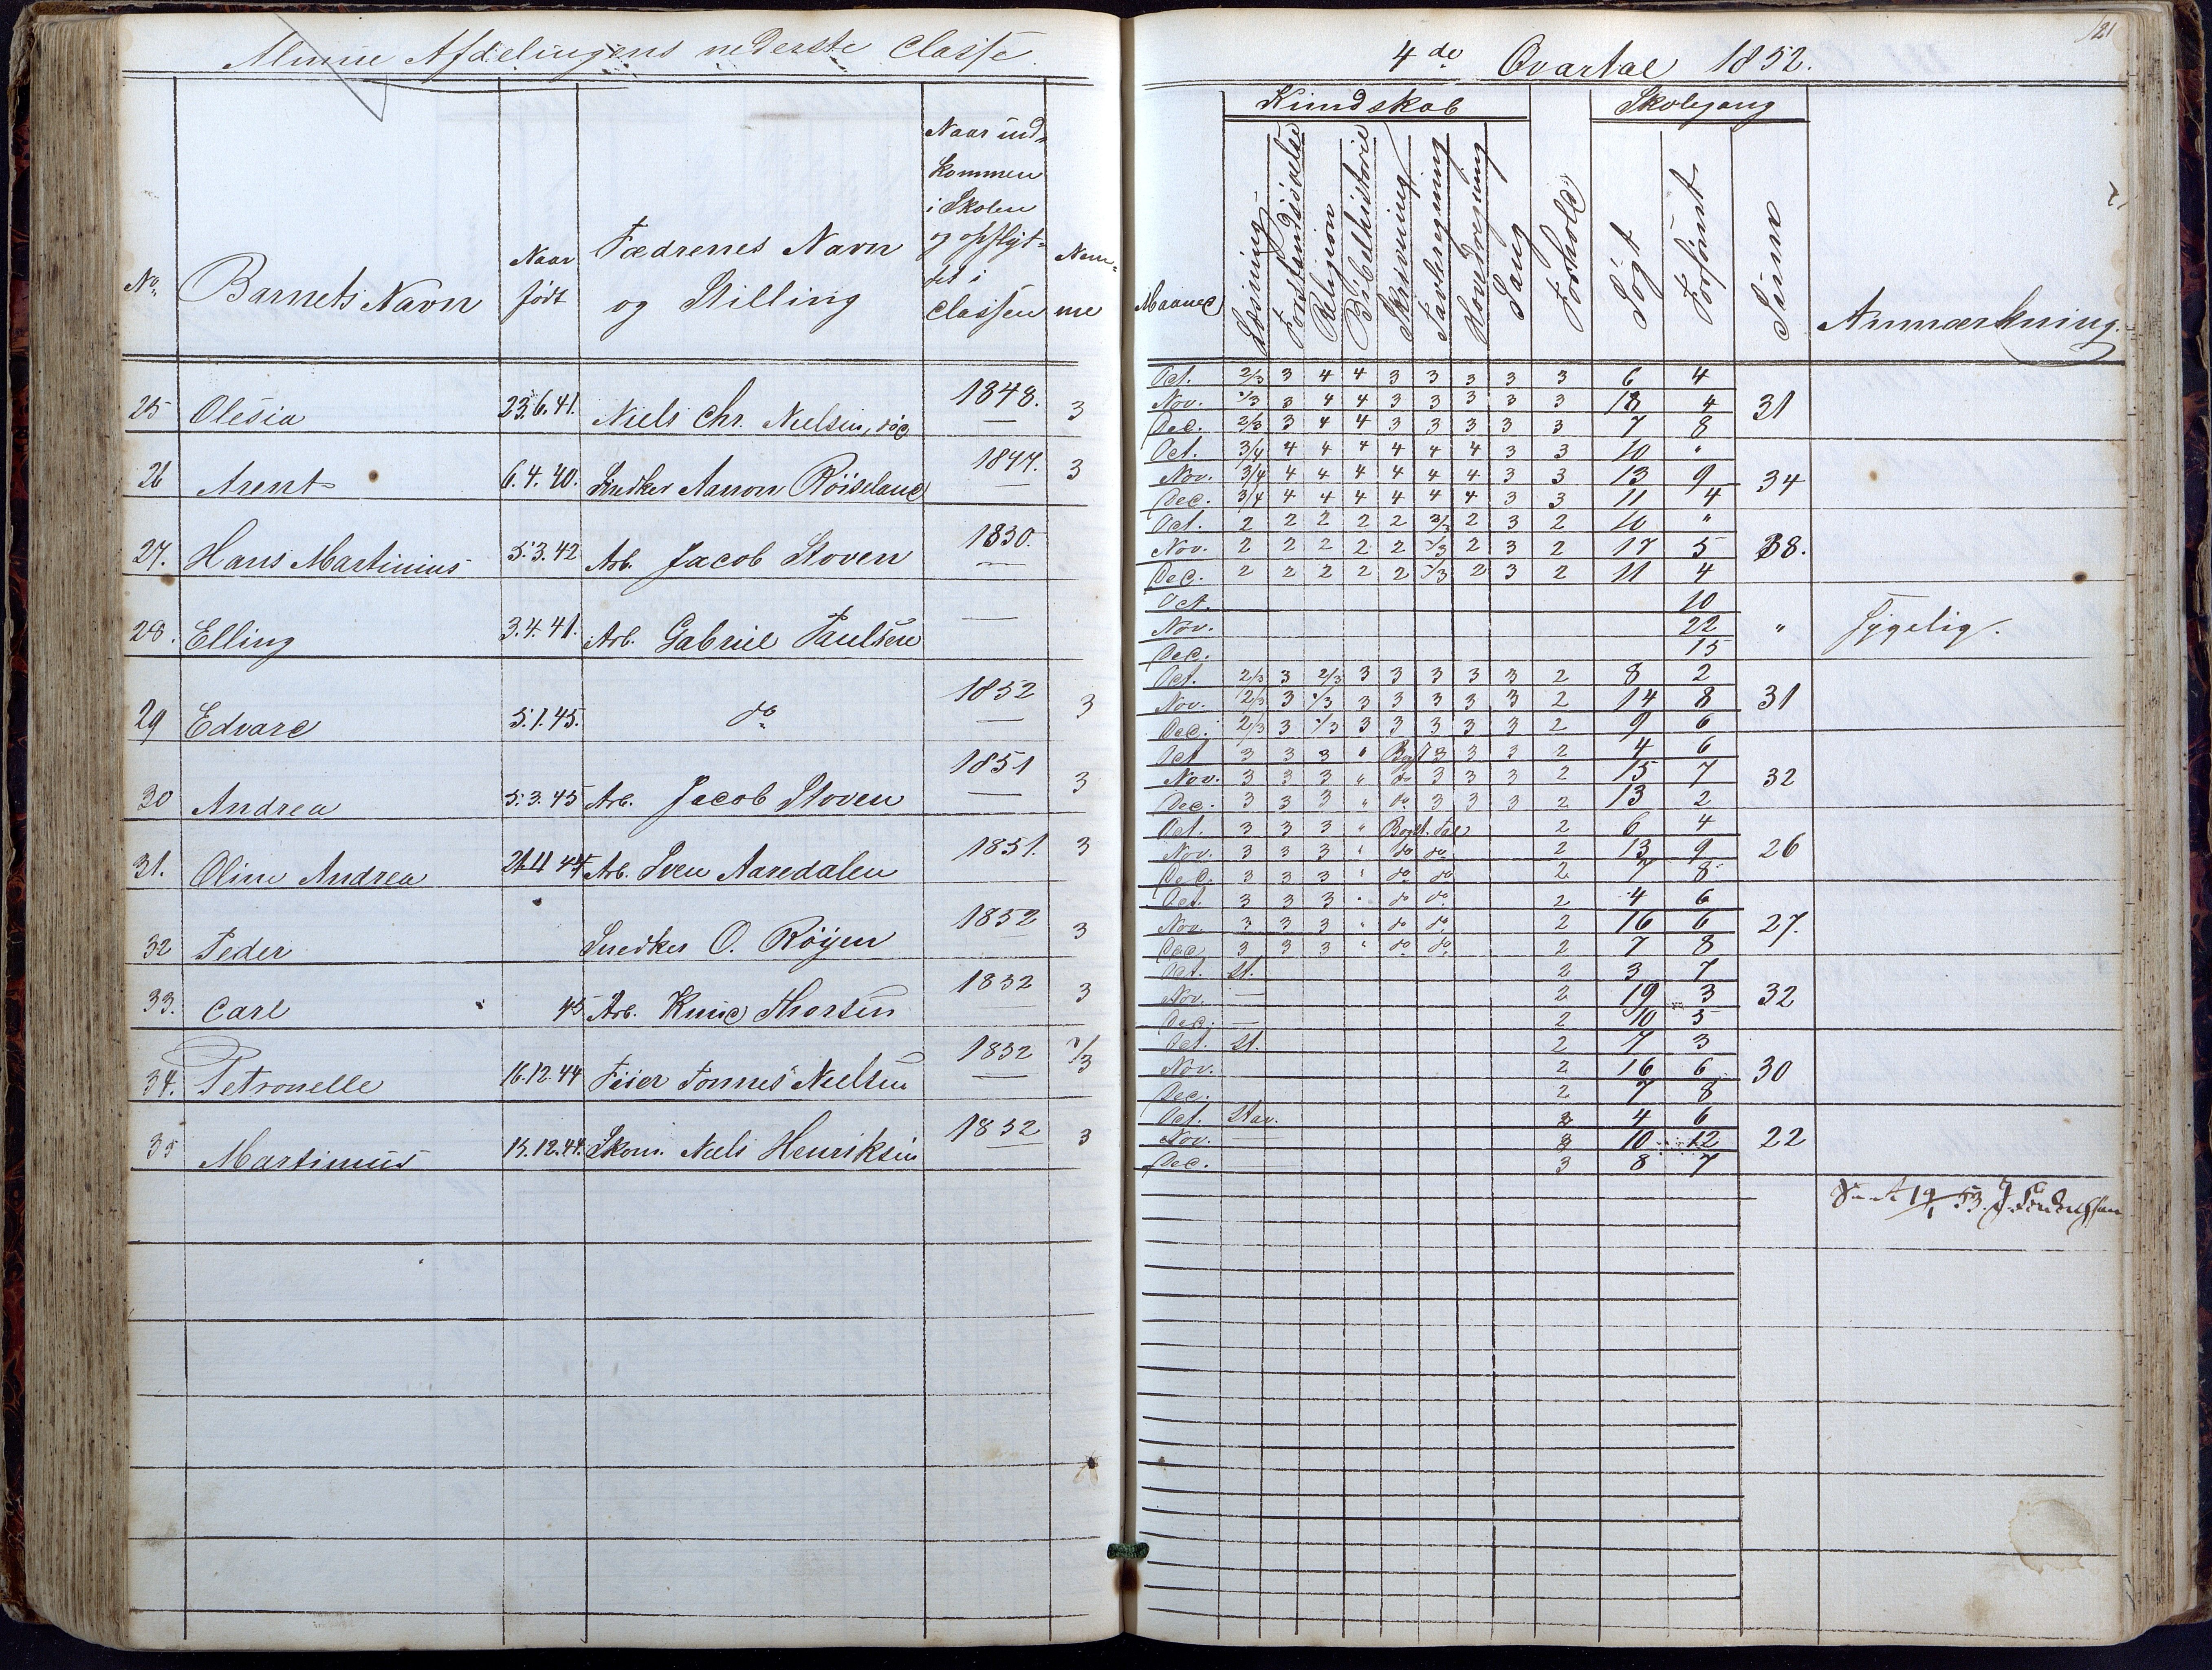 Almue Afdelingens nederste Classe.
No. Barnets Navn Naar født Fædrenes Navn og Stilling Naar ind- kommen i Skolen og opflyt- tet i Classen Nem- me
25 Olesia 23.6.41. Niels Chr. Nielsen, 1848. — 3
26 Arent 6.4.40. Snedker Aanon Röiseland 1847. — 3
27. Hans Martinius 5.3.42 Arb. Jacob Stoven 1850. — 2
28. Elling 3.4.41. Arb. Gabriel Paulsen —
29 Edvard 5.1.45. do 1852 — 3
30 Andrea 5.3.45 Arb. Jacob Stoven 1851 — 3
31. Oline Andrea 21.11 44 Arb. Sven Aaredalen 1851. 3
32 Peder Snedker O. Röyen 1852 3
33. Carl 45 Arb. Knud Thorsen 1852 3
34. Petronelle 16.12.44 Feier Tönnes Nielsen 1852 — 2/3
35 Martinius 15.12.44. Skom. Niels Henriksen 1852 — 3
121
4de Qvartal 1852.
Kundskab Skolegang
Maaned Læsning Forstandsövelse Religion Bibelhistorie Skrivning Tavleregning Hovedregning Sang Forhold Sögt Forsömt Summa Anmærkning.
Oct. 2/3 3 4 4 3 3 3 3 3 6 4
Nov. 2/3 3 4 4 3 3 3 3 3 18 4 31
Dec. 2/3 3 4 4 3 3 3 3 3 7 8
Oct. 3/4 4 4 4 4 4 4 3 3 10 "
Nov. 3/4 4 4 4 4 4 4 3 3 13 9 34
Dec. 3/4 4 4 4 4 4 4 3 3 11 4
Oct. 2 2 2 2 2 2/3 2 3 2 10 "
Nov. 2 2 2 2 2 2/3 2 3 2 17 5 38.
Dec. 2 2 2 2 2 2/3 2 3 2 11 4
Oct. 10
Nov. 22 " Sygelig.
Dec. 15
Oct. 2/3 3 2/3 3 3 3 3 3 2 8 2
Nov. 2/3 3 2/3 3 3 3 3 3 2 14 8 31
Dec. 2/3 3 2/3 3 3 3 3 3 2 9 6
Oct 3 3 3 " Bogst 3 3 3 2 4 6
Nov. 3 3 3 " do 3 3 3 2 15 7 32
Dec. 3 3 3 " do 3 3 3 2 13 2
Oct. 3 3 3 " Bogst. Tal 2 6 4
Nov. 3 3 3 " do do 2 13 9 26
Dec. 3 3 3 " do do 2 7 8
Oct. 3 3 3 " do do 2 4 6
Nov. 3 3 3 " do do 2 16 6 27.
Dec. 3 3 3 " do do 2 7 8
Oct. St. 2 3 7
Nov. — 2 19 3 32
Dec. — 2 10 5
Oct. St. 2 7 3
Nov. 2 16 6 30
Dec. 2 7 8
Oct. Stav. 3 4 6
Nov. — 3 10 12 22
Dec. 3 8 7
19/1 53.